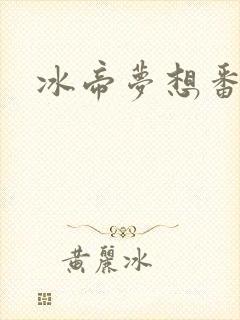 冰帝夢想番
黃麗冰